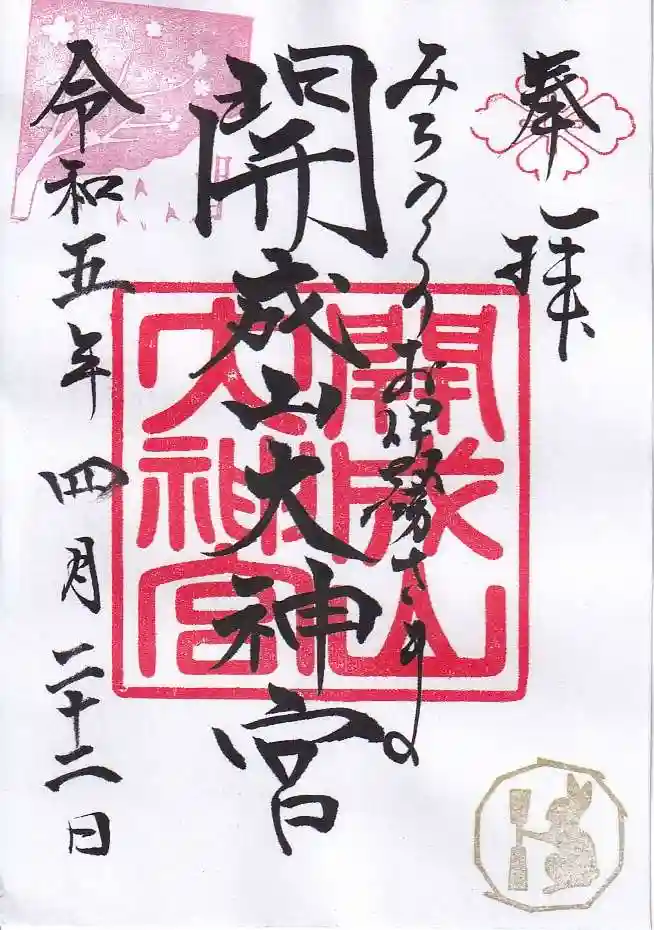 奉拝
みちのくのお伊勢さまの
開成山大神宮
開成山
大神宮
令和五年 四月 二十二日